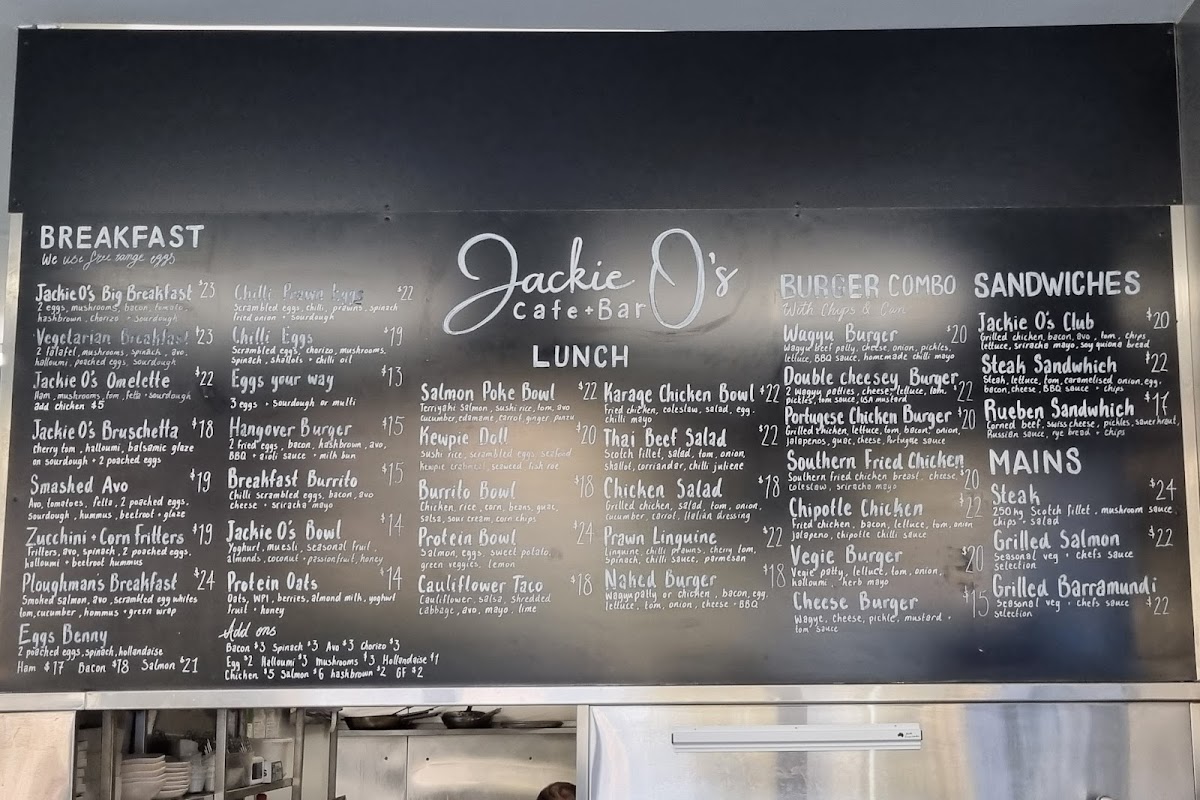 BREAKFAST
We use free range eggs
Jackie O's Big Breakfast $23
2 eggs, mushrooms, bacon, tomato,
hashbrown, chorizo + sourdough
Vegetarian Breakfast $23
2 falafel, mushrooms, spinach, avo,
halloumi, poached eggs, sourdough
Jackie O's Omelette $22
Ham, mushrooms, tom, fetta + sourdough
add chicken $5
Jackie O's Bruschetta $18
Cherry tom, halloumi, balsamic glaze
on sourdough + 2 poached eggs
Smashed Avo $19
Avo, tomatoes, fetta, 2 poached eggs,
Sourdough, hummus, beetroot + glaze
Zucchini + Corn fritters $19
Fritters, avo, spinach, 2 poached eggs,
halloumi + beetroot hummus
Ploughman's Breakfast $24
Smoked salmon, avo, scrambled egg whites
tom, cucumber, hommus + green wrap
Eggs Benny
2 poached eggs, spinach, hollandaise
Ham $17 Bacon $18 Salmon $21
Chilli Prawn Eggs $22
Scrambled eggs, chilli, prawns, spinach
fried onion + sourdough
Chilli Eggs $19
Scrambled eggs, chorizo, mushrooms,
Spinach, shallots + chilli oil
Eggs your way $13
3 eggs + sourdough or multi
Hangover Burger $15
2 fried eggs, bacon, hashbrown, avo,
BBQ + aioli sauce + milk bun
Breakfast Burrito $15
Chilli scrambled eggs, bacon, avo
cheese + sriracha mayo
Jackie O's Bowl $14
Yoghurt, muesli, seasonal fruit,
almonds, coconut + passionfruit, honey
Protein Oats $14
Oats, WPI, berries, almond milk, yoghurt
fruit + honey
Add ons
Bacon $3 Spinach $3 Avo $3 Chorizo $3
Egg $2 Halloumi $3 mushrooms $3 Hollandaise $1
Chicken $5 Salmon $6 hashbrown $2 GF $2
Jackie O's
Cafe + Bar
LUNCH
Salmon Poke Bowl $22
Terriyaki Salmon, sushi rice, tom, avo
cucumber, edamame, carrot, ginger, ponzu
Kewpie Doll $20
Sushi rice, scrambled eggs, seafood
kewpie crabmeat, seaweed, fish roe
Burrito Bowl $18
Chicken, rice, corn, beans, guac,
salsa, sour cream, corn chips
Protein Bowl $24
Salmon, eggs, sweet potato,
green veggies, lemon
Cauliflower Taco $18
Cauliflower, salsa, shredded
cabbage, avo, mayo, lime
Karage Chicken Bowl $22
Fried chicken, coleslaw, salad, egg,
chilli mayo
Thai Beef Salad $22
Scotch fillet, salad, tom, onion,
shallot, corriander, chilli juliene
Chicken Salad $18
Grilled chicken, salad, tom, onion,
cucumber, carrot, Italian dressing
Prawn Linguine $22
Linguine, chilli prawns, cherry tom,
Spinach, chilli sauce, parmesan
Naked Burger $18
Wagyu patty or chicken, bacon, egg,
lettuce, tom, onion, cheese + BBQ
BURGER COMBO
With Chips & Can
Wagyu Burger $20
Wagyu beef patty, cheese, onion, pickles,
lettuce, BBQ sauce, homemade chilli mayo
Double cheesey Burger $22
2 wagyu patties, cheese, lettuce, tom,
pickles, tom sauce, USA mustard
Portugese Chicken Burger $20
Grilled chicken, lettuce, tom, bacon, onion,
jalapenos, guac, cheese, Portugue sauce
Southern Fried Chicken $20
Southern fried chicken breast, cheese,
coleslaw, sriracha mayo
Chipotle Chicken $22
Fried chicken, bacon, lettuce, tom, onion
jalapeno, chipotle chilli sauce
Vegie Burger $20
Vegie patty, lettuce, tom, onion,
halloumi, herb mayo
Cheese Burger $15
Wagye, cheese, pickle, mustard +
tom sauce
SANDWICHES
Jackie O's Club $20
Grilled chicken, bacon, avo, tom, chips
lettuce, sriracha mayo, soy quiona bread
Steak Sandwhich $22
Steak, lettuce, tom, caramelised onion, egg,
bacon, cheese, BBQ sauce + chips
Rueben Sandwhich $17
Corned beef, swiss cheese, pickles, sauerkraut,
Russian sauce, rye bread + chips
MAINS
Steak $24
250kg Scotch fillet, mushroom sauce
chips + salad
Grilled Salmon $22
Seasonal veg + chefs sauce
selection
Grilled Barramundi $22
Seasonal veg + chefs sauce
selection